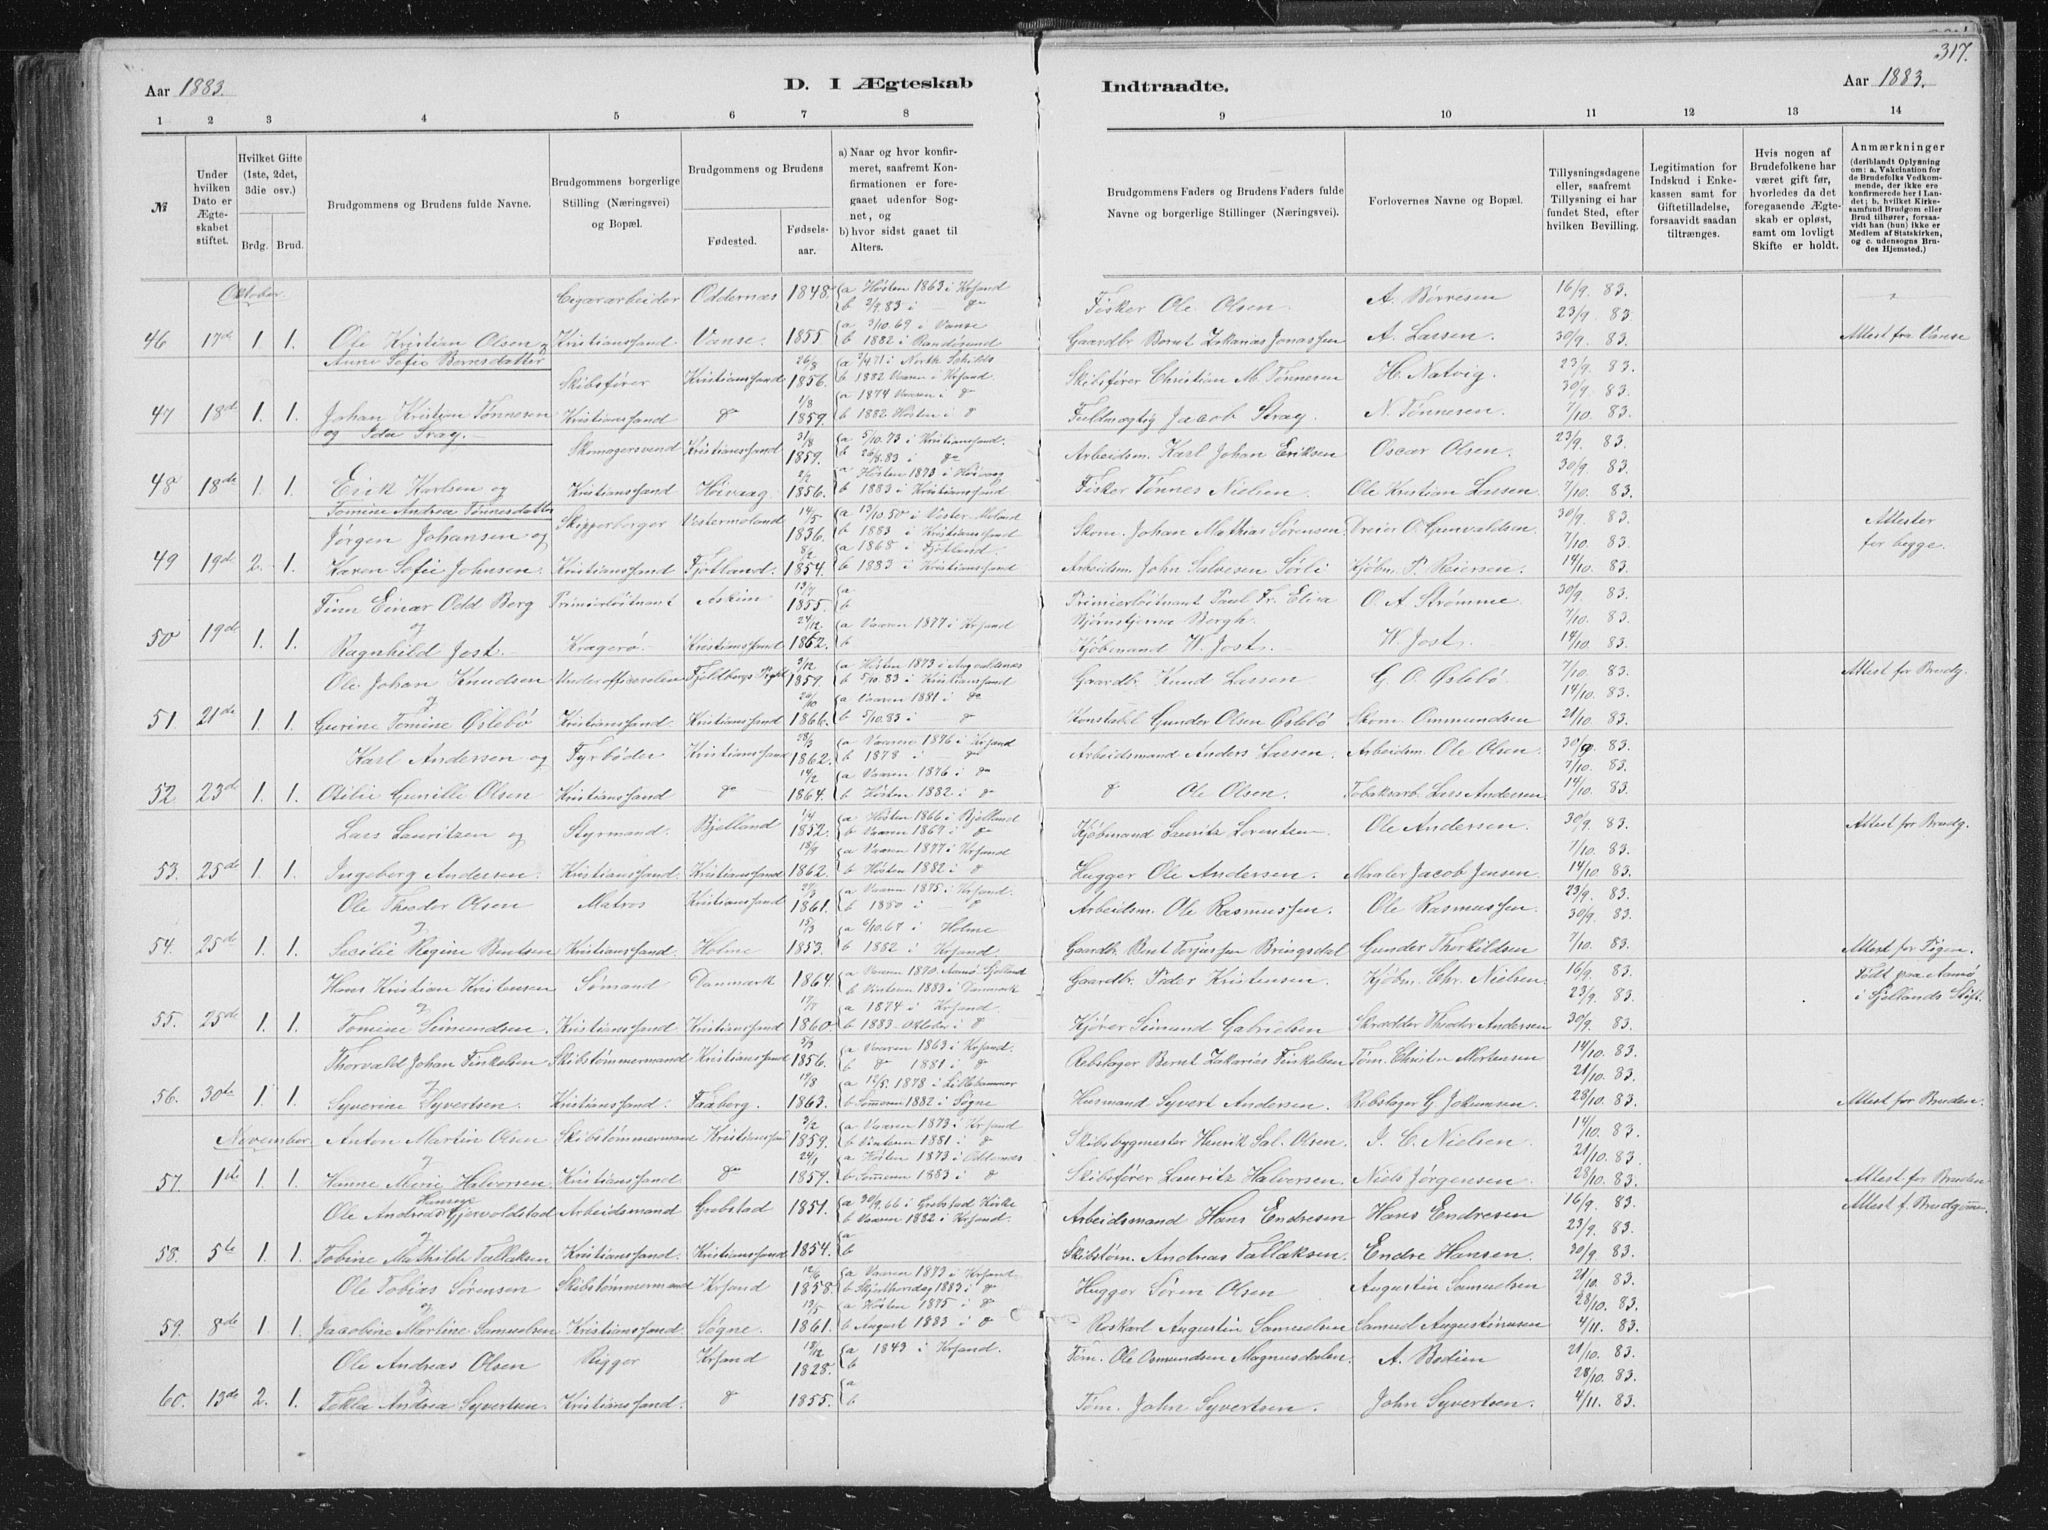 317.
Aar 1883. D. I Ægteskab Indtraadte. Aar 1883.
1 2 3 4 5 6 7 8 9 10 11 12 13 14
№
Under hvilken Dato er Ægteskabet stiftet.
Hvilket Gifte (1ste, 2det, 3die osv.)
Brdg. Brud.
Brudgommens og Brudens fulde Navne.
Brudgommens borgerlige Stilling (Næringsvei) og Bopæl.
Brudgommens og Brudens
Fødested. Fødselsaar.
a) Naar og hvor konfirmeret, saafremt Konfirmationen er foregaaet udenfor Sognet, og
b) hvor sidst gaaet til Alters.
Brudgommens Faders og Brudens Faders fulde Navne og borgerlige Stillinger (Næringsvei).
Forlovernes Navne og Bopæl.
Tillysningsdagene eller, saafremt Tillysning ei har fundet Sted, efter hvilken Bevilling.
Legitimation for Indskud i Enkekassen samt for Giftetilladelse, forsaavidt saadan tiltrænges.
Hvis nogen af Brudefolkene har været gift før, hvorledes da det foregaaende Ægteskab er opløst, samt om lovligt Skifte er holdt.
Anmærkninger (deriblandt Oplysning om: a. Vakcination for de Brudefolks Vedkommende, der ikke ere konfirmerede her i Landet; b, hvilket Kirkesamfund Brudgom eller Brud tilhører, forsaavidt han (hun) ikke er Medlem af Statskirken, og c. udensogns Brudes Hjemsted.)
Oktober. Cigararbeider Oddernæs 1848. a Høsten 1863 i Krsand b 2/9.83 i do Fisker Ole Olsen A. Børresen 16/9. 83. 23/9. 83.
46 17de 1. 1. Ole Kristian Olsen og Kristianssand Vanse. 1855 a 3/10.69 i Vanse b 1882 Randøsund Gaardbr. Bernt Zakarias Jonassen A. Lassen. 30/9. 83. Attest fra Vanse
Anne Sofie Berntsdatter
Skibsfører Kristianssand 26/8 1856. a 3/4 71 i North Schilds b 1882 Vaaren i Krsand. Skibsfører Christian M. Tønnesen H. Natvig. 23/9. 83. 30/9. 83.
47 18de 1. 1. Johan Kristian Tønnesen Kristianssand do 1/8 1859. a 1874 Vaaren i do b 1882 Høsten i do Fuldmægtig Jacob Stray. N. Tønnesen. 7/10. 83.
og Ida Stray.
Skomagersvend Kristianssand 31/8 1859. a 5/10.73 i Kristianssand. b 26/8.83 i do Arbeidsm. Karl Johan Eriksen Oscar Olsen. 23/9. 83. 30/9. 83.
48 18de 1. 1. Erik Karlsen og Kristianssand Høivaag 2/2 1856. a Høsten 1873 i Høivaag b 1883 i Kristianssand Fisker Tønnes Nielsen. Ole Kristian Lassen 7/10 83.
Tomine Andrea Tønnesdatter
Jørgen Johansen og Skipperborger Vestermoland 14/5 1836. a 13/10 50 i Vester Moland b 1883 i Kristianssand Skom. Johan Mathias Sørensen Dreier O. Gunvaldsen 30/9. 83. 7/10. 83. Attester for begge.
49 19de 2. 1. Karen Sofie Johnsen. Kristianssand Fjotland. 8/2 1854. a 1868 i Fjotland. b 1883 i Kristianssand Arbeidsm. John Salvesen Sørli Kjøbm. P. Reiersen. 14/10 83.
Finn Einar Odd Berg Primierløitnant Askim 13/7 1855. a b Primierløitnant Paul Fr. Elisa Bjørnstjerna Bergh. O. A. Strømme 30/9. 83. 7/10. 83.
50 19de 1. 1. og Ragnhild Jost. Kragerø. Kristianssand 24/12 1862. a Vaaren 1877 i Krsand b Kjøbmand W. Jost. W. Jost. 14/10 83.
Ole Johan Knudsen Underofficerelev Fjeldbergs Pgld 3/12 1859. a Høsten 1873 i Augvaldsnæs b 5/10.83 i Kristianssand Gaardbr. Knud Lassen G. O. Øslebø 7/10. 83. 14/10. 83. Attest for Brudg.
51 21de 1. 1. og Gurine Tomine Øslebø Kristianssand. Kristianssand 20/10 1866. a Vaaren 1881 i do b 5/10.83 i do Konstabl Gunder Olsen Øslebø Skom. Ommundsen 21/10. 83.
Karl Andersen og Fyrbøder Kristianssand 28/3 1862. a Vaaren 1876 i Krsand b 1878 i do Arbeidsmand Anders Lassen. Arbeidsm. Ole Olsen 30/9. 83. 7/10. 83.
52 23de 1. 1. Otilie Gunille Olsen Kristianssand do 14/2 1864. a Vaaren 1876 i do b Høsten 1882 i do do Ole Olsen. Tobaksarb. Lars Andersen. 14/10. 83.
Lars Lauritzen og Styrmand. Bjelland 7/4 1852. a Høsten 1866 i Bjelland b Vaaren 1867 i do Kjøbmand Lauritz Lorentsen Ole Andersen. 30/9. 83. 7/10. 83. Attest for Brudg.
53. 25de 1. 1. Ingeborg Andersen. Kristianssand. Kristianssand 18/9 1862. a Vaaren 1877 i Krsand b Høsten 1882 i do Hugger Ole Andersen. Maaler Jacob Jensen. 14/10 83.
Ole Theodor Olsen Matros Kristianssand 27/3 1861. a Vaaren 1875 i Krsand. b 1880 i do Arbeidsm. Ole Rasmussen. Ole Rasmussen. 23/9. 83. 30/9. 83.
54. 25de 1. 1. og Secilie Regine Bentsen Kristianssand. Holme 15/3 1853. a 6/10.67 i Holme b 1882 i Krsand Gaardbr. Bent Torjussen Bringsdal Gunder Thorkildsen 7/10. 83. Attest for Pigen.
Hans Kristian Kristensen Sømand Danmark 1864. a Vaaren 1870. Aamø Sjelland b Vinteren 1883 i Danmark Gaardbr. Peder Kristensen Kjøbm. Chr. Nielsen. 16/9. 83. 23/9. 83. Født paa Aamø i Sjellands Stift.
55. 25de 1. 1. og Tomine Simundsen. Kristianssand Kristianssand 17/7 1860. a 1874 i Krsand. b 1883. Oktober i do Kjører Simund Gabrielsen Skrædder Theodor Andersen 30/9. 83.
Thorvald Johan Finkelsen Skibstømmermand Kristianssand 5/9 1856. a Vaaren 1863 i Krsand. b do 1881 i do Rebslager Bernt Zakarias Finkelsen Tøm. Christen Mortensen 14/10 83. 21/10. 83.
56. 30te 1. 1. og Syverine Syvertsen. Kristianssand. Faaberg. 19/8 1863. a 12/5. 1878 i Lillehammer b Sommeren 1882 i Søgne Husmand Syvert Andersen. Rebslager G. Jokumsen 28/10. 83. Attest for Bruden.
November. Anton Martin Olsen Skibstømmermand Kristianssand 3/12 1859. a Vaaren 1873 i Krsand b Vinteren 1881 i do Skibsbygmester Henrik Sal. Olsen. J. C. Nielsen. 14/10. 83. 21/10. 83.
57. 1ste 1. 1. og Hanne Marie Halvorsen. Kristianssand do 24/1 1859. a Høsten 1873 i Oddernæs b Sommeren 1883 i do Skibsfører Lauritz Halversen. Niels Jørgensen. 28/10. 83. Attest for Bruden
Ole Andreas Hansen Gjervoldstad Arbeidsmand Grebstad 1851. a 30/9.66 i Grebstad Kirke b Vaaren 1882 i Krsand. Arbeidsmand Hans Endresen Hans Endresen 16/9. 83. 23/9. 83. Attest f. Brudgommen.
58. 5te 1. 1. og Tobine Mathilde Tallaksen. Kristianssand. Kristianssand 1854. a b Skibstøm. Andreas Tallaksen. Endre Hansen. 30/9. 83.
Ole Tobias Sørensen Skibstømmermand Krsand 12/6 1858. a Vaaren 1873 i Krsand. b Skjærthorsdag 1883 i do Hugger Søren Olsen Augustin Samuelsen 21/10. 83. 28/10. 83.
59. 8de 1. 1. og Jacobine Martine Samuelsen Kristianssand Søgne. 13/5 1861. a Høsten 1875 i do b August 1883 i do Roskarl Augustin Samuelsen Samuel Augustinusen 4/11. 83.
Ole Andreas Olsen Rigger Krsand 18/12 1828. a 1843 i Krsand. b Tøm. Ole Osmundsen Magnusdalen. A. Bodien 21/10. 83. 28/10. 83.
60. 13de 2. 1. og Tekla Andrea Syvertsen. Kristianssand. do 1855. a b Tøm. John Syvertsen. John Syvertsen. 4/11. 83.